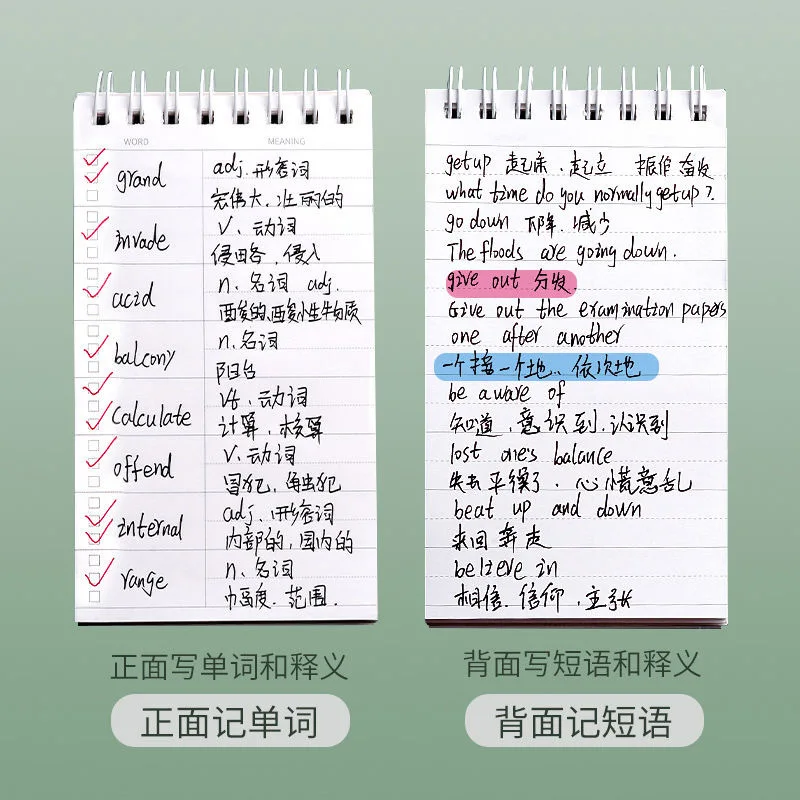 WORD MEANING
grand adj. 形容词
宏伟大、壮丽的
invade v. 动词
侵略,侵入
acid n. 名词 adj.
酸的、酸小生物质
balcony n. 名词
阳台
calculate vt. 动词
计算,核算
offend v. 动词
冒犯,触犯
internal adj. 形容词
内部的,国内的
range n. 名词
幅度.范围.
get up 起床、起立 振作奋发
what time do you normally get up?
go down 下降、减少
The floods are going down.
give out 分发.
Give out the examination papers
one after another
一个接一个地、依次地
be aware of
知道,意识到.认识到
lost one's balance
失去平衡了.心慌意乱
beat up and down
来回奔走
believe in
相信.信仰,主张
正面写单词和释义
正面记单词
背面写短语和释义
背面记短语